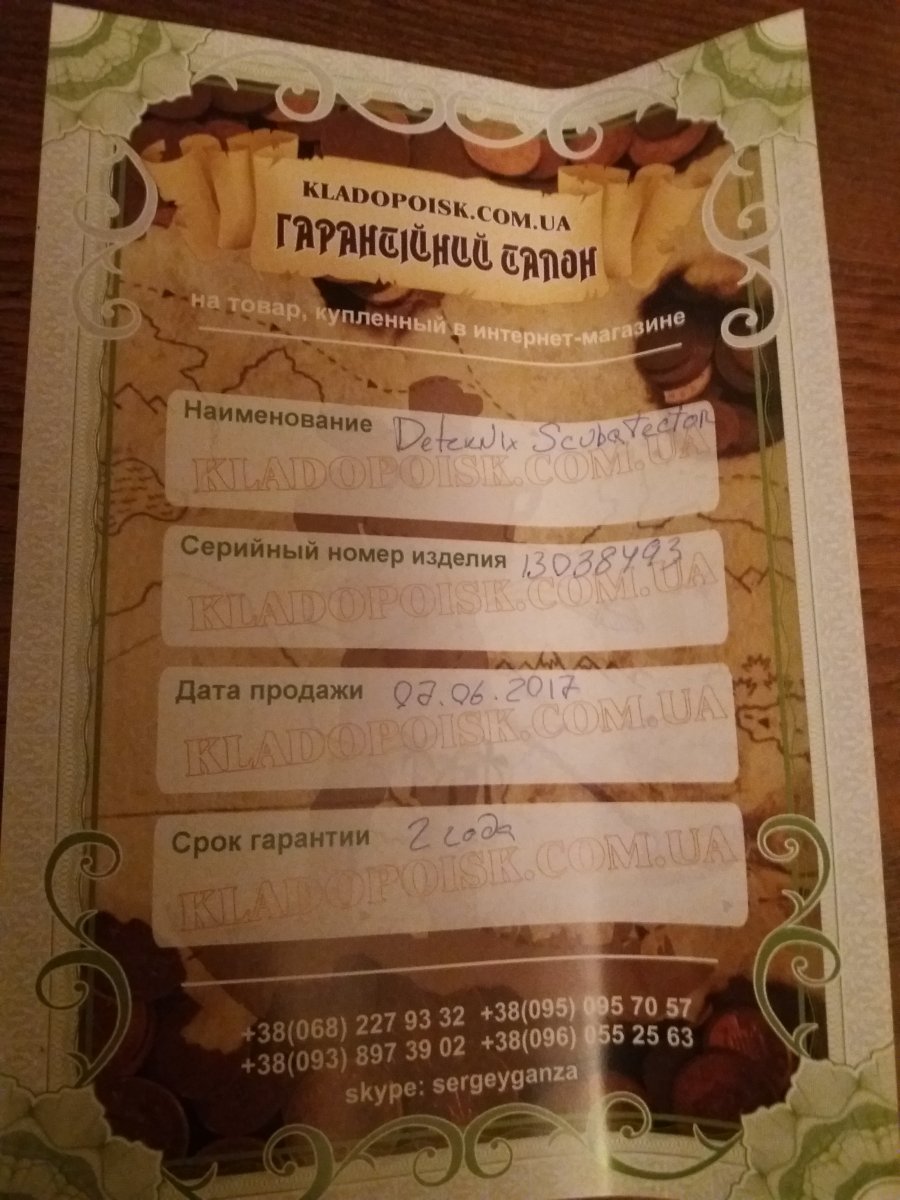 KLADOPOISK.COM.UA
ГАРАНТІЙНИЙ ТАЛОН
на товар, купленный в интернет-магазине
Наименование Deteknix ScubaTector
KLADOPOISK.COM.UA
Серийный номер изделия 13038493
KLADOPOISK.COM.UA
Дата продажи 07.06.2017
KLADOPOISK.COM.UA
Срок гарантии 2 года
KLADOPOISK.COM.UA
+38(068) 227 93 32 +38(095) 095 70 57
+38(093) 897 39 02 +38(096) 055 25 63
skype: sergeyganza